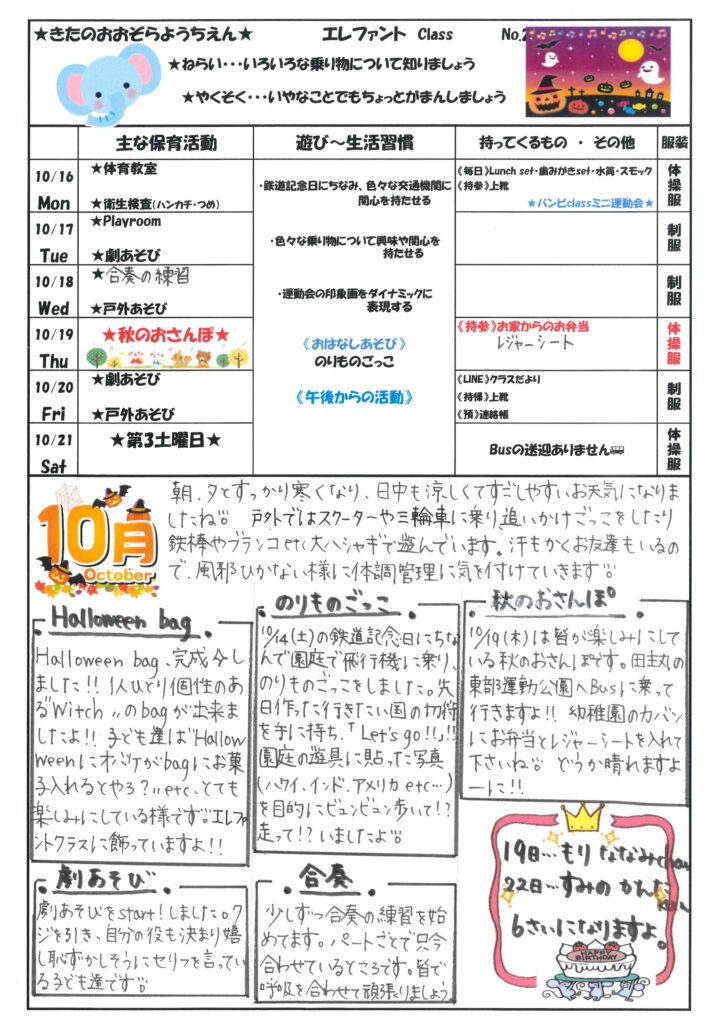 ★きたのおおぞらようちえん★ エレファント Class No.2
★ねらい・・・いろいろな乗り物について知りましょう
★やくそく・・・いやなことでもちょっとがまんしましょう
主な保育活動 遊び～生活習慣 持ってくるもの ・ その他 服装
10/16 Mon
★体育教室
★衛生検査(ハンカチ・つめ)
・鉄道記念日にちなみ、色々な交通機関に
関心を持たせる
《毎日》Lunch set・歯みがきset・水筒・スモック
《持参》上靴
★バンビclassミニ運動会★
体操服
10/17 Tue
★Playroom
★劇あそび
・色々な乗り物について興味や関心を
持たせる
制服
10/18 Wed
★合奏の練習
★戸外あそび
・運動会の印象画をダイナミックに
表現する
制服
10/19 Thu
★秋のおさんぽ★
《おはなしあそび》
のりものごっこ
《持参》お家からのお弁当
レジャーシート
体操服
10/20 Fri
★劇あそび
★戸外あそび
《午後からの活動》
《LINE》クラスだより
《持帰》上靴
《預》連絡帳
制服
10/21 Sat
★第3土曜日★
Busの送迎ありません
体操服
10月
October
朝、夕とすっかり寒くなり、日中も涼しくてすごしやすいお天気になりま
したね。 戸外ではスクーターや三輪車に乗り追いかけごっこをしたり
鉄棒やブランコetc大ハシャギで遊んでいます。汗もかくお友達もいるの
で、風邪ひかない様に体調管理に気を付けていきます。
Halloween bag
Halloween bag、完成しました!! 1人ひとり個性のあ
る"Witch"のbagが出来ま
したよ!! 子ども達は"Hallow
weenにオバケがbagにお菓
子入れるとやろ?"etc、とても
楽しみにしている様です。エレファ
ントクラスに飾っていますよ!!
のりものごっこ
10/14(土)の鉄道記念日にちな
んで園庭で飛行機に乗り、
のりものごっこをしました。先
日作った行きたい国の切符
を手に持ち、「Let's go!!」!!
園庭の遊具に貼った写真
(ハワイ、インド、アメリカetc…)
を目的にビュンビュン歩いて!?
走って!?いましたよ。
秋のおさんぽ
10/19(木)は皆が楽しみにし
ている秋のおさんぽです。田主丸の
東部運動公園へBusに乗って
行きますよ!! 幼稚園のカバン
にお弁当とレジャーシートを入れて
下さいね。 どうか晴れますよ
ーに!!
劇あそび
劇あそびをstart!しました。ク
ジを引き、自分の役も決まり嬉
し恥ずかしそうにセリフを言ってい
る子ども達です。
合奏
少しずつ合奏の練習を始
めてます。パートごとで只今
合わせているところです。皆で
呼吸を合わせて頑張りましょう
19日…もり ななみchan
22日…すみの かんた
6さいになりますよ。
HAPPY BIRTHDAY